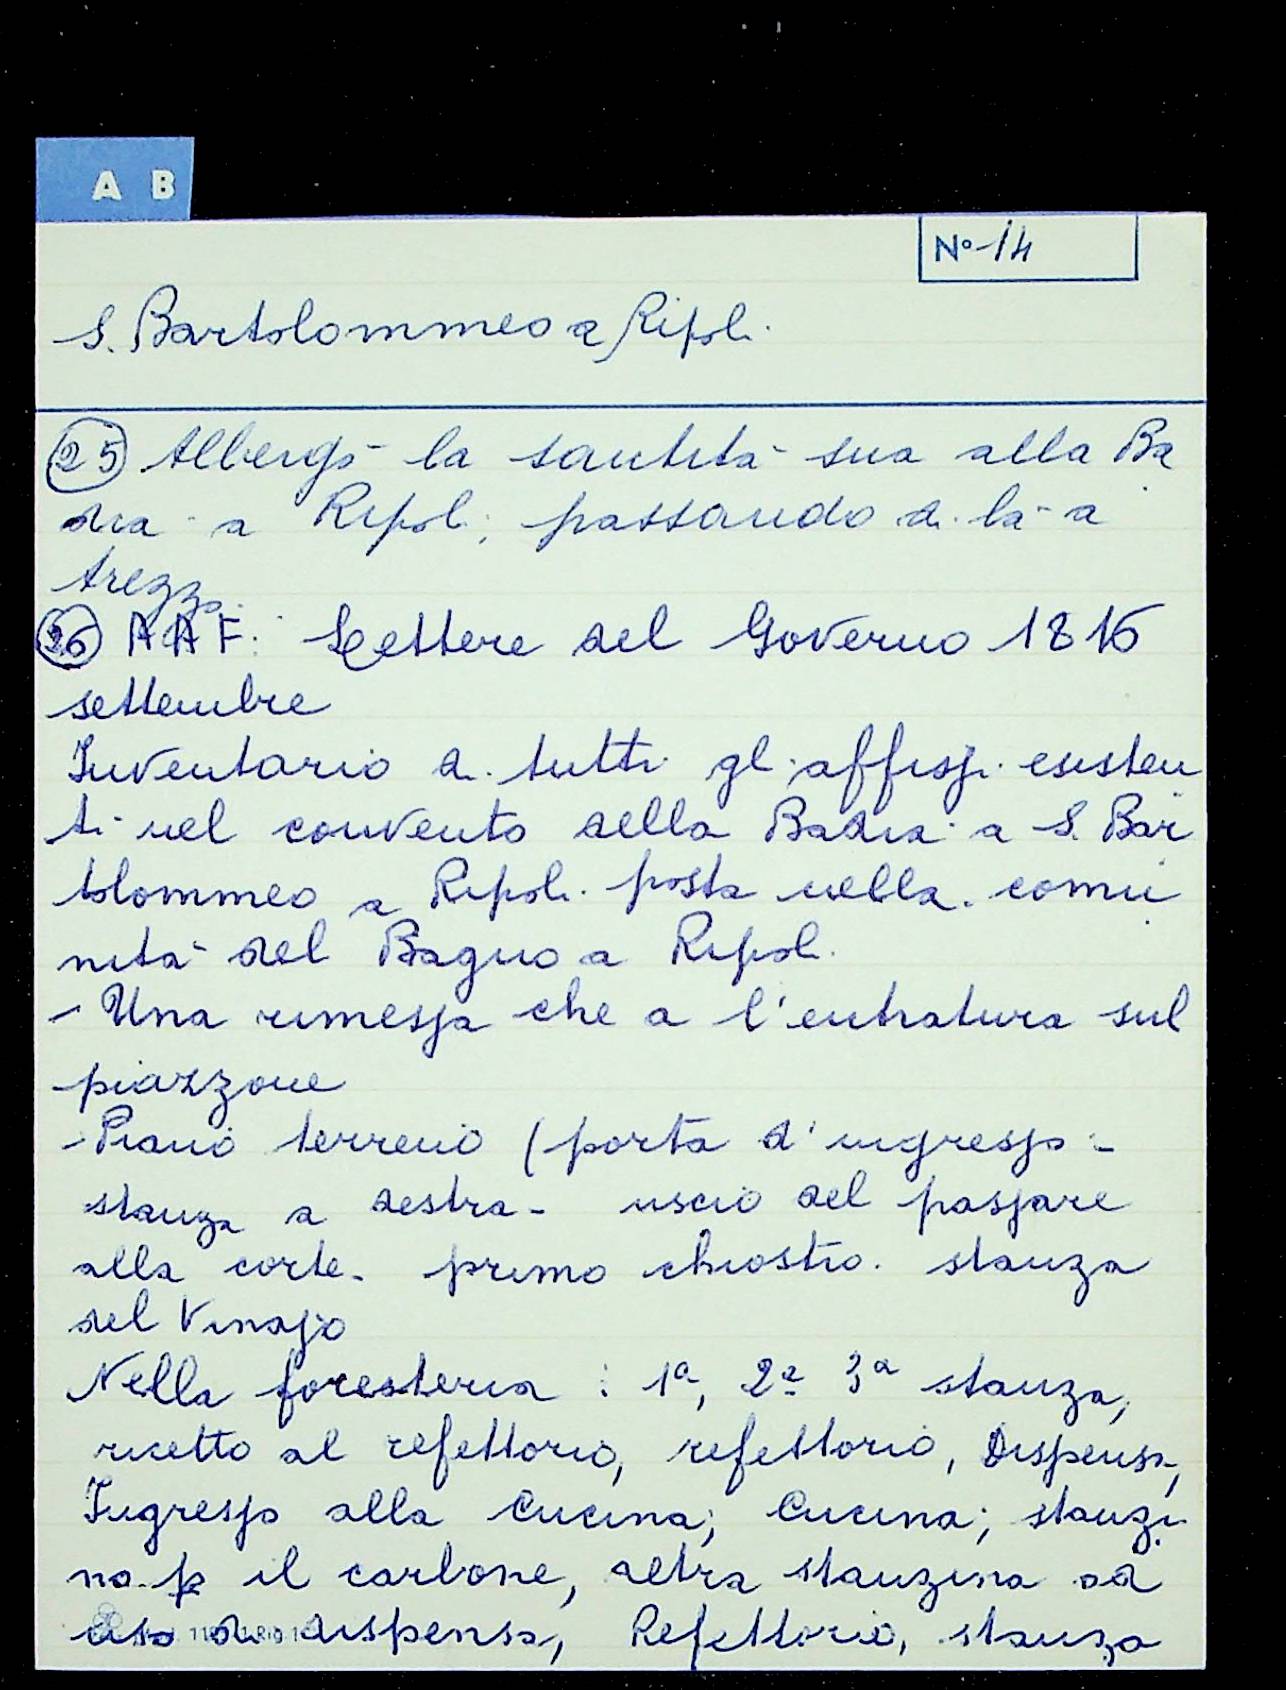 A B
No 14
S. Bartolommeo a Ripoli
25 Albergò la santità sua alla Ba
dia a Ripoli, passando di là a
Arezzo.
26 A A F. Lettere del Governo 1816
settembre
Inventario di tutti gli affissi esisten
ti nel convento della Badia a S. Bar
tolommeo a Ripoli posta nella comu
nità del Bagno a Ripoli.
- Una rimessa che a l'entratura sul
piazzone
- Piano terreno (porta d'ingresso -
stanza a destra - uscio del passare
alla corte - primo chiostro. stanza
del Vinajo
Nella foresteria : 1a, 2a 3a stanza,
ricetto al refettorio, refettorio, Dispensa,
Ingresso alla Cucina; Cucina; stanzi
na p il carbone, altra stanzina ad
uso di dispensa, Refettorio, stanza